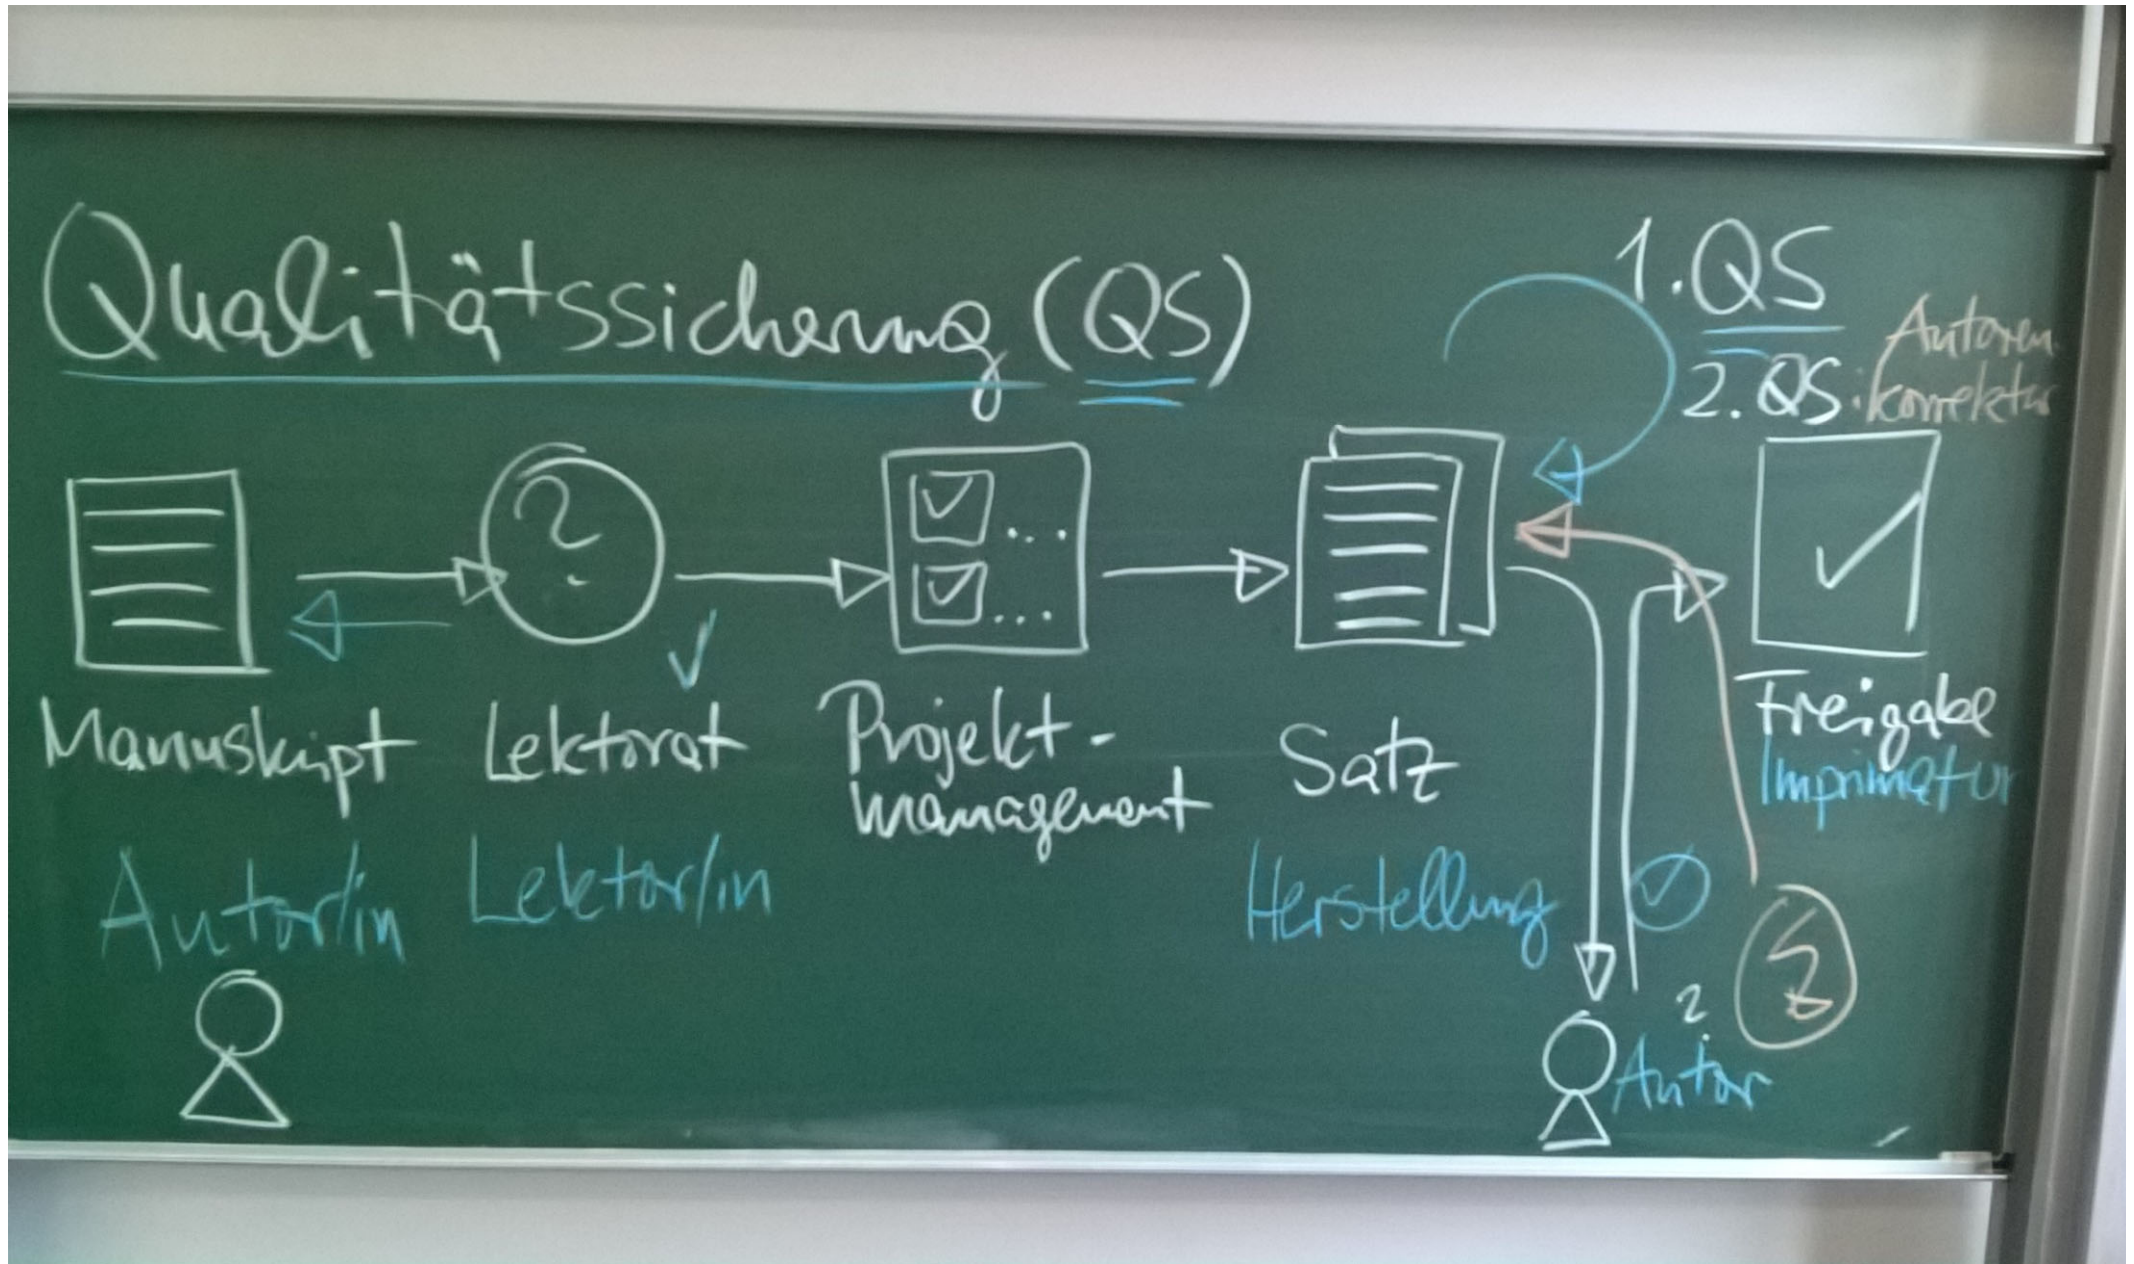 Qualitätssicherung (QS)
1. QS
2. QS: Autoren-
korrektur
?
Manuskript
Lektorat
Projekt-
management
Satz
Freigabe
Imprimatur
Autor/in
Lektor/in
Herstellung
?
Autor